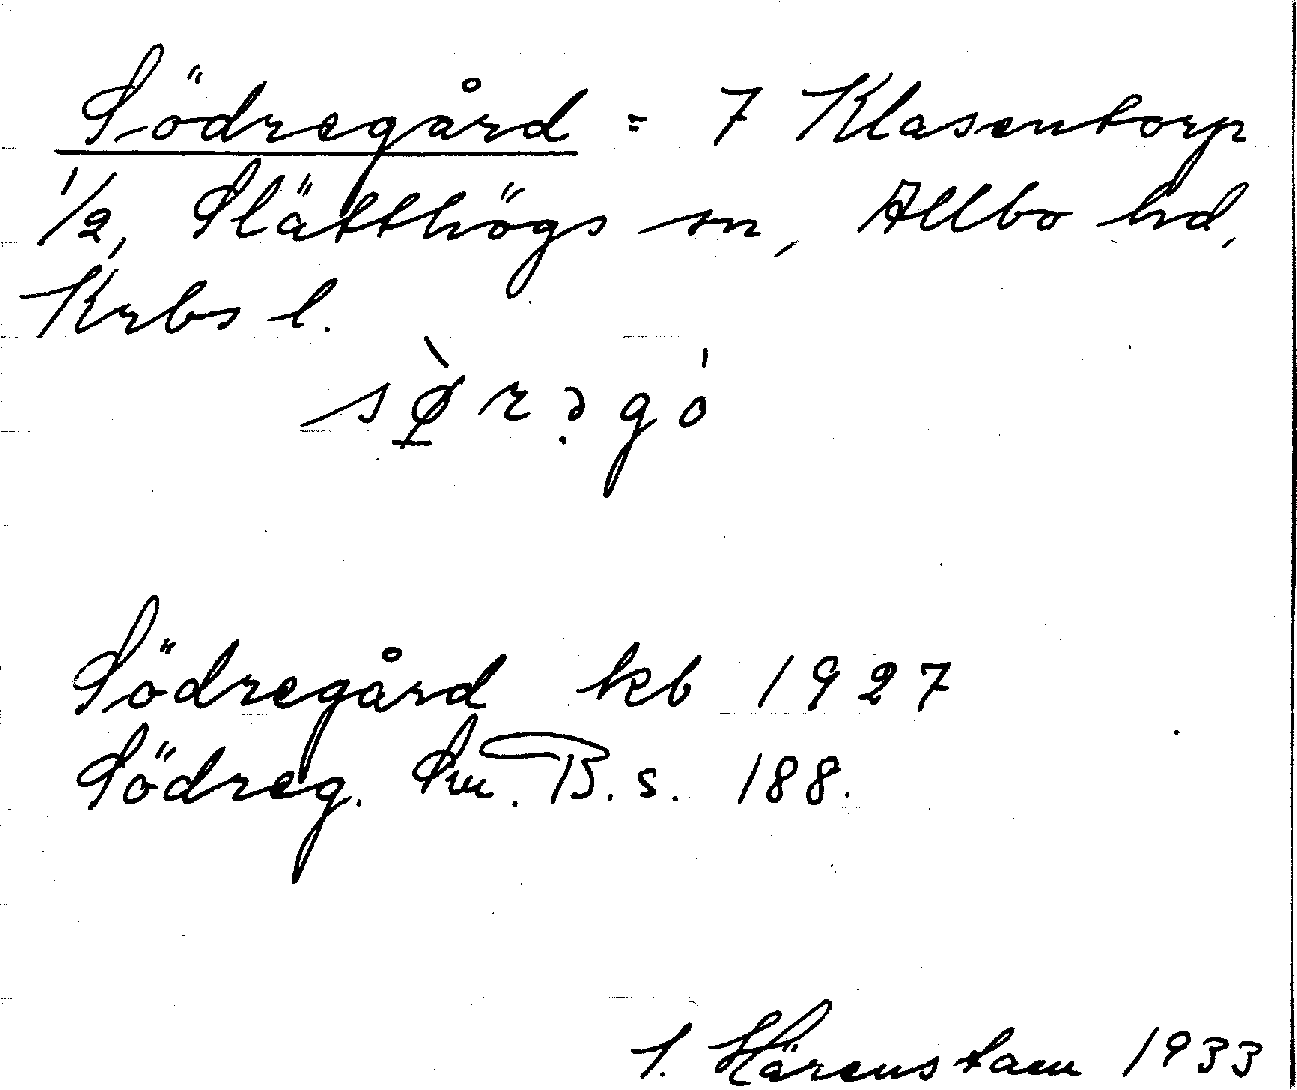 Södregård = 7 Klasentorp
1/2, Slätthögs sn, Allbo hd,
Krbs l.
sø̀rəgó
Södregård kb 1927
Södreg. Sm. B. s. 188.
Härenstam 1933